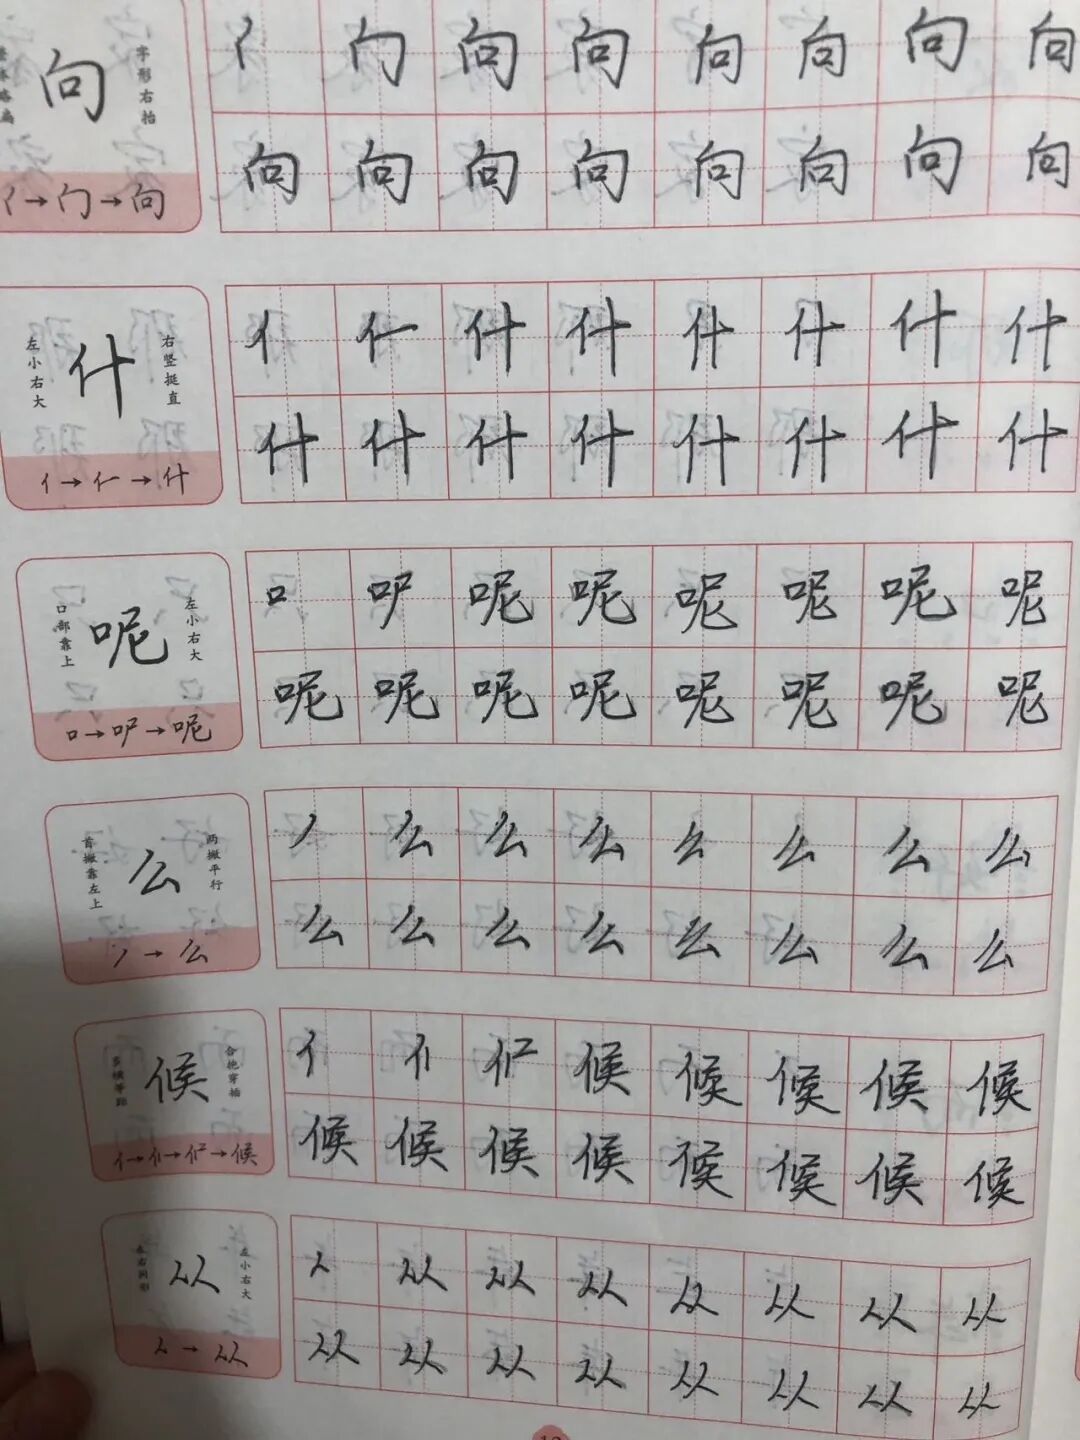 向 字形右抬
亻→门→向
亻 门 向 向 向 向 向 向
向 向 向 向 向 向 向 向
左小右大 什 右竖挺直
亻→仁→什
亻 什 什 什 什 什 什
什 什 什 什 什 什 什 什
口部靠上 呢 左小右大
口→呢
口 呢 呢 呢 呢 呢 呢
呢 呢 呢 呢 呢 呢 呢 呢
首撇靠左上 么 两撇平行
丿→么
丿 么 么 么 么 么 么 么
么 么 么 么 么 么 么 么
多横等距 候
亻→候
亻 候 候 候 候 候
候 候 候 候 候 候 候 候
左右同形 从 左小右大
人→从
人 从 从 从 从 从 从 从
从 从 从 从 从 从 从 从